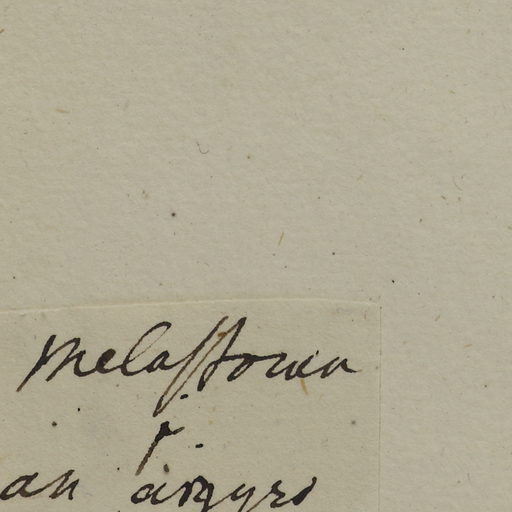 Melastoma
r.
an argyro